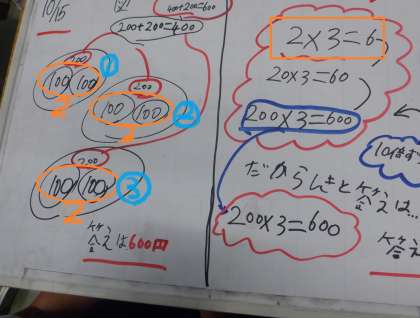 10/15
400+200=600
200+200=400
200
100 100 ①
2
200
100 100 ②
2
200
100 100 ③
2
答えは600円
2×3=6
20×3=60
200×3=600
10倍ず
だから
答えは…
200×3=600
答え